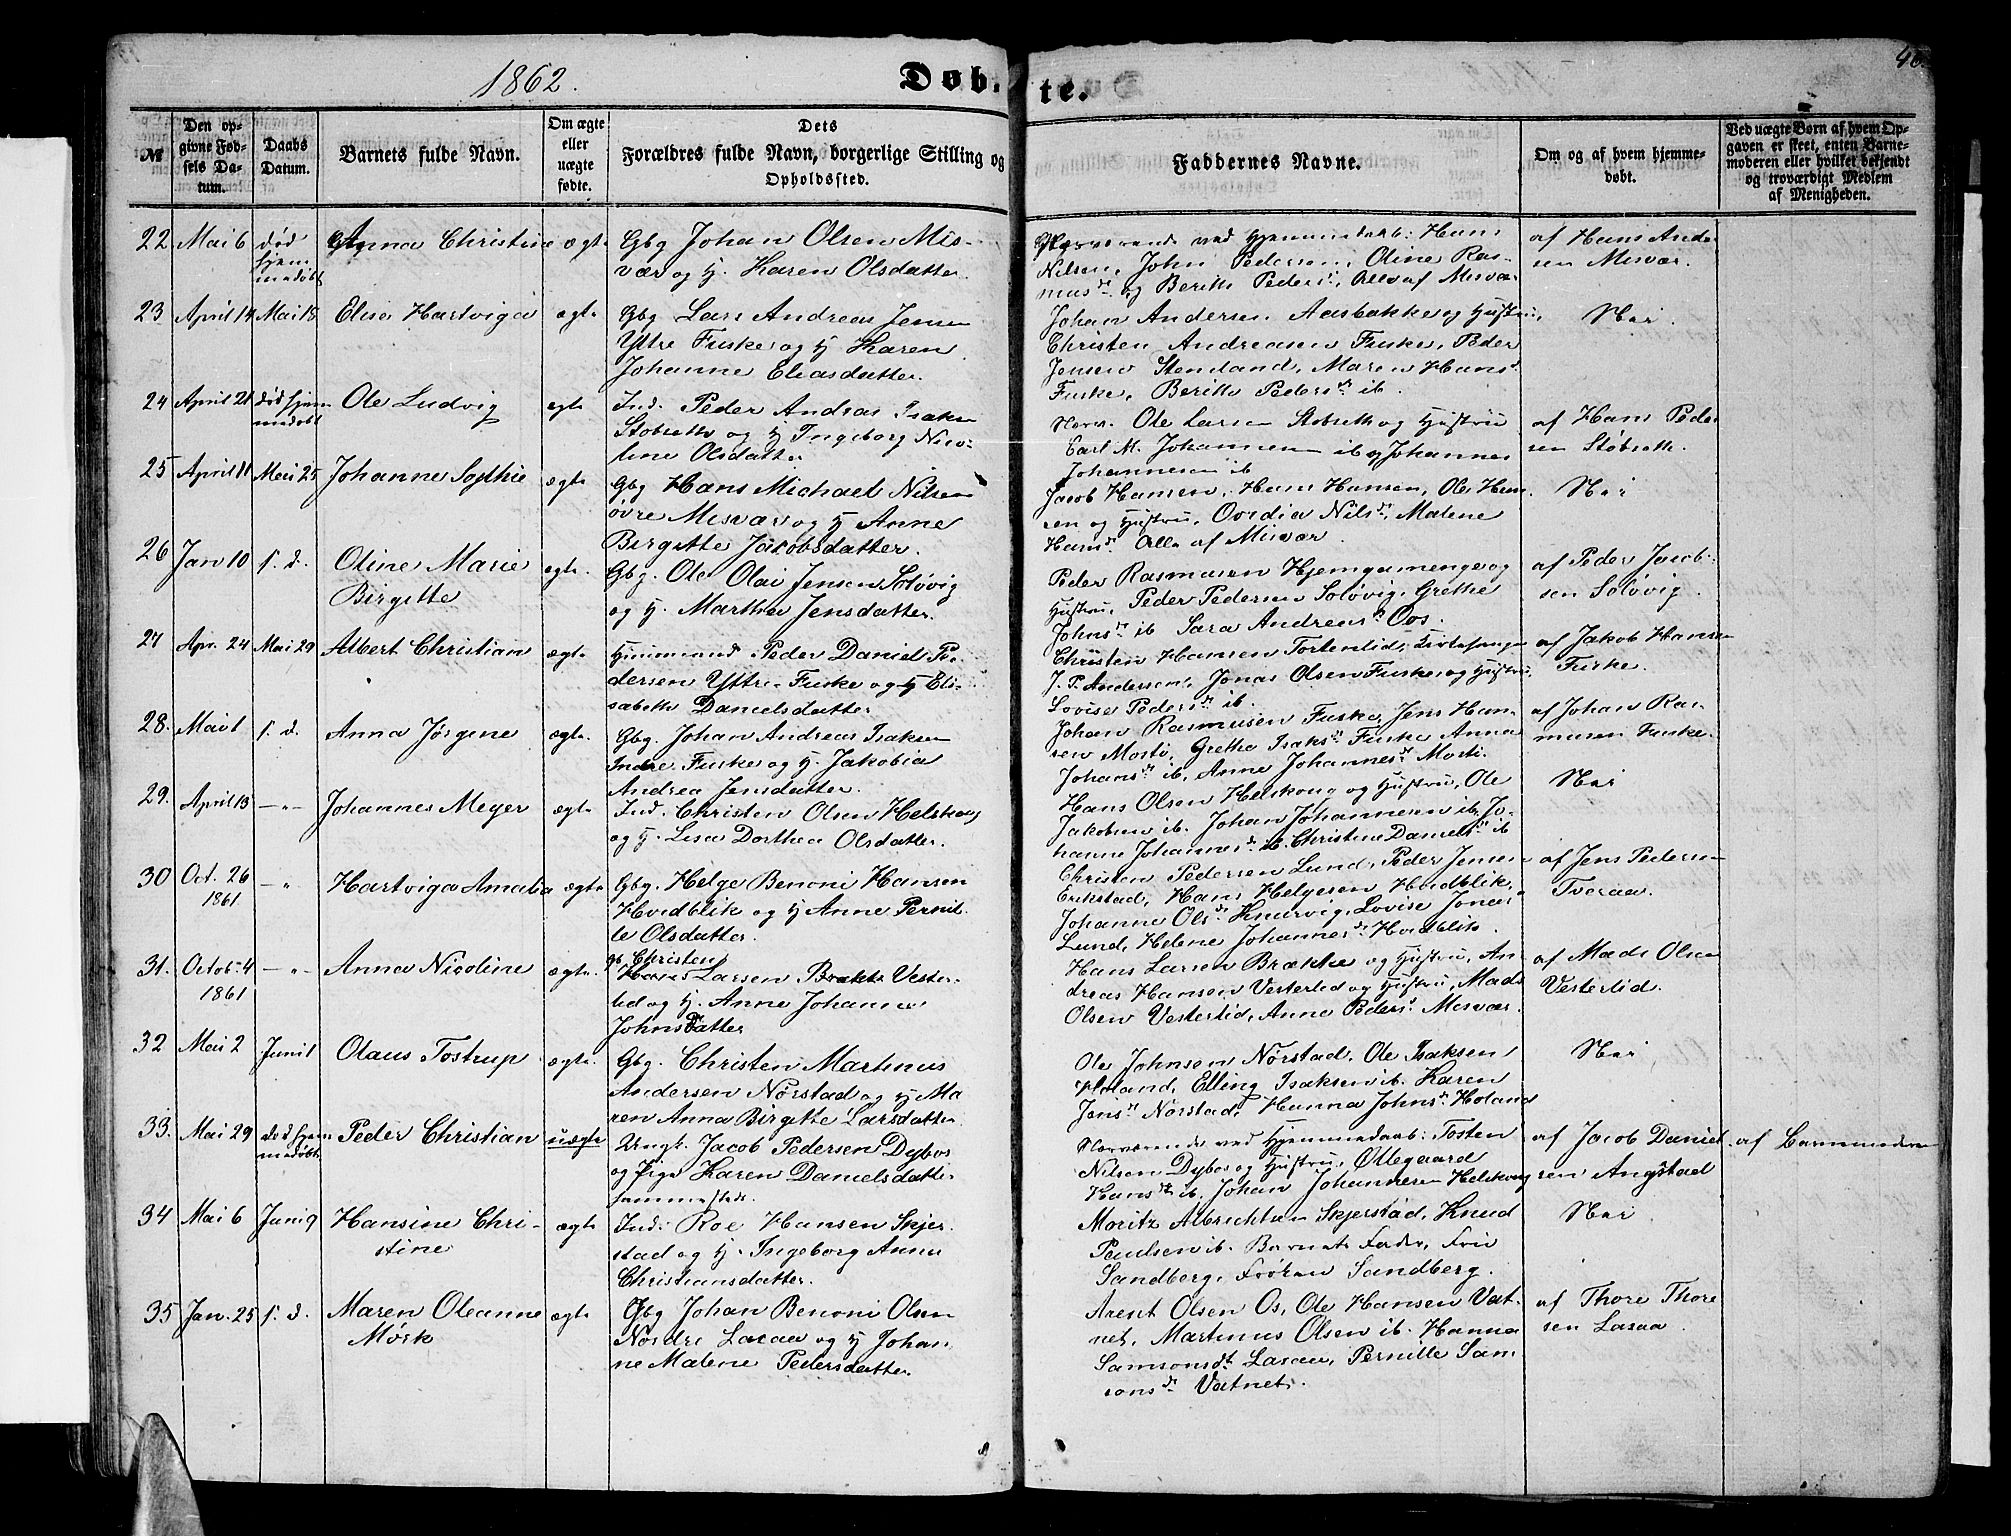 1862.
Døbte.
40.
№
Den opgivne Fødsels Datum.
Daabs Datum.
Barnets fulde Navn.
Om ægte eller uægte fødte.
Dets Forældres fulde Navn, borgerlige Stilling og Opholdssted.
Faddernes Navne.
Om og af hvem hjemmedøbt.
Ved uægte Børn af hvem Opgaven er skeet, enten Barnemoderen eller hvilket bekjendt og troværdigt Medlem af Menigheden.
22 Mai 6 død hjemmedøbt Anna Christine ægte
Gbg Johan Olsen Mis-
vær og H. Karen Olsdatter.
Nærværende ved Hjemmedaab: Hans
Nilsen, John Pedersen, Oline Ras-
musdr og Berith Pedersdr, Alle af Misvær
af Hans Ander
sen Misvær.
23 April 14 Mai 18 Elisa Hartviga ægte
Gbg Lars Andreas Jensen
Yttre Fuske og H Karen
Johanne Eliasdatter.
Johan Andersen Aasbakke og Hustru,
Christen Andreasen Fuske, Peder
Jensen Stemland, Maren Hansdr
Fuske, Berith Pedersdr ib.
Nei.
24 April 21 død hjemmedøbt Ole Ludvig ægte
Ind. Peder Andreas Isaksen
Støbseth og H Ingeborg Nico-
line Olsdatter
Nærv. Ole Larsen Støbseth og Hustru
Carl M. Johannesen ib og Johannes
Johannesen ib
af Hans Peder
sen Støbseth.
25 April 11 Mai 25 Johanne Sophie ægte
Gbg Hans Michael Nilsen
øvre Misvær og H Anne
Birgitte Jakobsdatter.
Jacob Hansen, Hans Hansen, Ole Han-
sen og Hustru, Ovedia Nilsdr, Malene
Hansdr Alle af Misvær.
Nei
26 Jan 10 s. d. Oline Marie
Birgitte ægte.
Gbg. Ole Olai Jensen Soløvig
og H. Martha Jensdatter.
Peder Rasmusen Hjemgamenge og
Hustru, Peder Pedersen Soløvig, Grethe
Johnsdr ib Sara Andreasdr Oos.
af Peder Jacob-
sen Soløvig.
27 Apr. 24 Mai 29 Albert Christian ægte
Huusmand Peder Daniel Pe-
dersen Yttre Fuske og H Eli-
sabeth Danielsdatter
Christen Hansen Tortenlid,
J. P. Andersen, Jonas Olsen Fuske og Hustru,
Lovise Pedersdr ib.
af Jakob Hansen
Fuske.
28. Mai 1 s. d. Anna Jørgine ægte.
Gbg. Johan Andreas Isaksen
Indre Fuske og H. Jakobia
Andrea Jensdatter.
Johan Rasmusen Fuske, Jens Han-
sen Mostø, Grethe Isaksdr Fuske Anna
Johansdr ib, Anne Johannesdr Mostø.
af Johan Ras-
musen Fuske.
29. April 13 — " — Johannes Meyer ægte
Ind. Christen Olsen Helskoug
og H. Lisa Dorthea Olsdatter.
Hans Olsen Helskoug og Hustru, Ole
Jakobsen ib. Johan Johannesen ib, Jo-
hanne Johannesdr ib. Christine Danielsdr ib
Nei
30 Oct. 26 — " Hartviga Amalia ægte
1861
Gbg. Helge Benoni Hansen
Hvidblik og H Anne Pernil-
le Olsdatter.
Christen Pedersen Lund, Peder Jensen
Erikstad, Hans Helgesen Hvidblik,
Johanne Olsdr Knurvig, Lovise Jonasdr
Lund, Helene Johannesdr Hvidblik.
af Jens Pedersen
Tveraa.
31. Octob. 4 — " Anna Nicoline ægte.
1861
gb. Christen
Hans Larsen Brække Vester-
lid og H. Anne Johanne
Johnsdatter
Hans Larsen Brække og Hustru, An-
dreas Hansen Vesterlid og Hustru, Mads
Olsen Vesterlid, Anne Pedersdr Misvær.
af Mads Olsen
Vesterlid.
32 Mai 2 Juni 1 Olaus Tostrup ægte.
Gbg. Christen Martinus
Andersen Nørstad og H Ma
ren Anna Birgitte Larsdatter
Ole Johnsen Nørstad, Ole Isaksen
Holand, Elling Isaksen ib. Karen
Jensdr Nørstad, Hanna Johnsdr Holand
Nei
33. Mai 29 død hjemmedøbt Peder Christian uægte
Ungk. Jacob Pedersen Dybos
og Pige Karen Danielsdatter
sammesteds.
Nærværende ved Hjemmedaab: Tosten
Nilsen Dybos og Hustru, Ollegaard
Hansdr ib, Johan Johannesen Helskoug
af Jacob Daniel-
sen Angstad
af Barnemoderen
34 Mai 6 Juni 9 Hansine Chri-
stine ægte
Ind. Roe Hansen Skjer-
stad og H. Ingeborg Anna
Christiansdatter.
Moritz Albrechtsen Skjerstad, Knud
Paulsen ib. Barnets Fader, Fru
Sandberg, Frøken Sandberg.
Nei.
35 Jan. 25 s. d. Maren Oleanne
Mørk ægte
Gbg Johan Benoni Olsen
Nordre Laxaa og H Johan-
ne Malene Pedersdatter.
Arent Olsen Os, Ole Hansen Vat-
net, Martinus Olsen ib. Hanna
Samsonsdt Laxaa, Pernille Sam-
sonsdr Vatnet.
af Thore Thore
sen Laxaa.